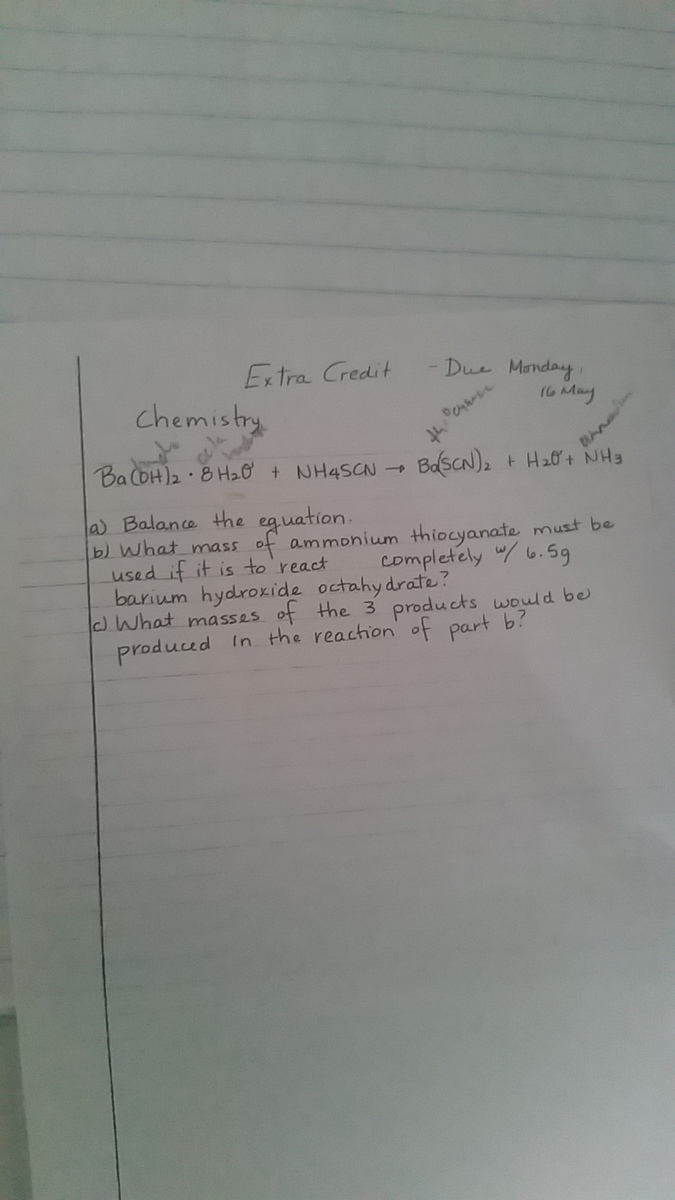 Extra Credit - Due Monday,
16 May
Chemistry
Ba(OH)2 · 8H2O + NH4SCN → Ba(SCN)2 + H2O + NH3
a) Balance the equation.
b) What mass of ammonium thiocyanate must be
used if it is to react completely w/ 6.5g
barium hydroxide octahydrate?
c) What masses of the 3 products would be
produced in the reaction of part b?